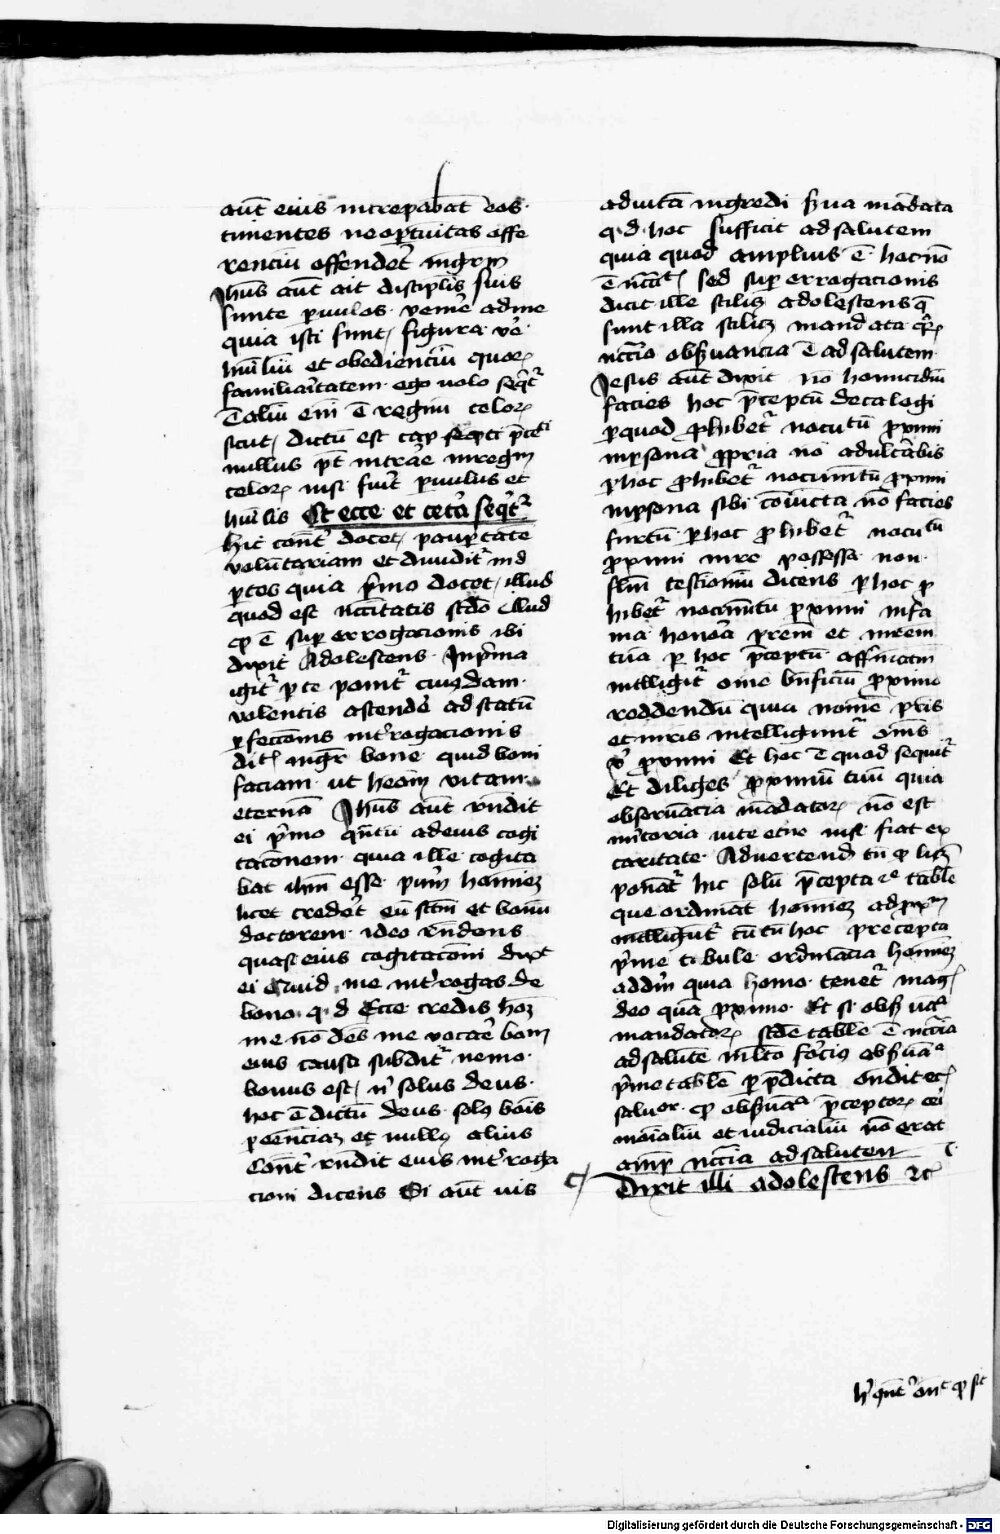 aut eius increpabat eos
timentes ne oportunitas offe
rencium offendet mgrm
Jhus aut ait discipulis suis
sinite parvulos venire ad me
quia isti sunt figura ve
humilium et obediencium quorum
familiaritatem ego volo sequitur
Talium enim e regnum celorum
sicut dictum est cap
nullus pt intrare in regnum
celorum nisi fuerit parvulus et
humilis Et ecce et cetera sequitur
Hic cont docet paupertatem
voluntariam et dividitur in d
partes quia primo docet illud
quod est necessitatis secundo illud
quod e supererrogacionis ibi
dixit Adolescens In prima
igitur parte ponitur cuiusdam
volentis ascendere ad statum
perfeccionis interrogacionis
dicens mgr bone quid boni
faciam ut habeam vitam
eternam Jhus aut respondit
ei primo quantum ad eius cogi
tacionem quia ille cogita
bat ihm esse purum hominem
licet crederet eum sanctum et bonum
doctorem ideo respondens
quasi eius cogitacioni dixit
ei Quid me interrogas de
bono q d Ecce credis hominem
me non debes me vocare bonum
eius causa subditur nemo
bonus est nisi solus deus
hoc e dictum deus solus bonus
per essenciam et nullus alius
Cont respondit eius interroga
cioni dicens Si aut vis
ad vitam ingredi serva mandata
q d hoc sufficit ad salutem
quia quod amplius e hoc non
e sed supererrogacionis
dicit ille scilicet adolescens que
sunt illa scilicet mandata quorum
necessaria observancia e ad salutem
Jesus aut dixit non homicidium
facies hoc preceptum decalogi
per quod prohibetur nocumentum proximi
in persona propria non adulterabis
per hoc prohibetur nocumentum proximi
in persona sibi coniuncta non facies
furtum per hoc prohibetur nocumentum
proximi in re possessa non
falsum testimonium dicens per hoc pro
hibetur nocumentum proximi in fa
ma honora patrem et matrem
tuam per hoc preceptum affirmativum
intelligitur omne beneficium proximo
reddendum quia nomine patris
et matris intelliguntur omnes
proximi Et hoc e quod sequitur
Et diliges proximum tuum quia
observancia mandatorum non est
meritoria vite eterne nisi fiat ex
caritate Advertendum tamen quod licet
ponantur hic solum precepta 2e tabule
que ordinant hominem ad proximum
intelliguntur tamen hoc precepta
prime tabule ordinancia hominem
ad deum quia homo tenetur magis
deo quam proximo Et si observancia
mandatorum secunde tabule e necessaria
ad salutem multo forcius observancia
prime tabule per predicta ondit
salvator quod observancia preceptorum ceri
monialium et iudicialium non erat
amplius necessaria ad salutem
Dixit illi adolescens etc